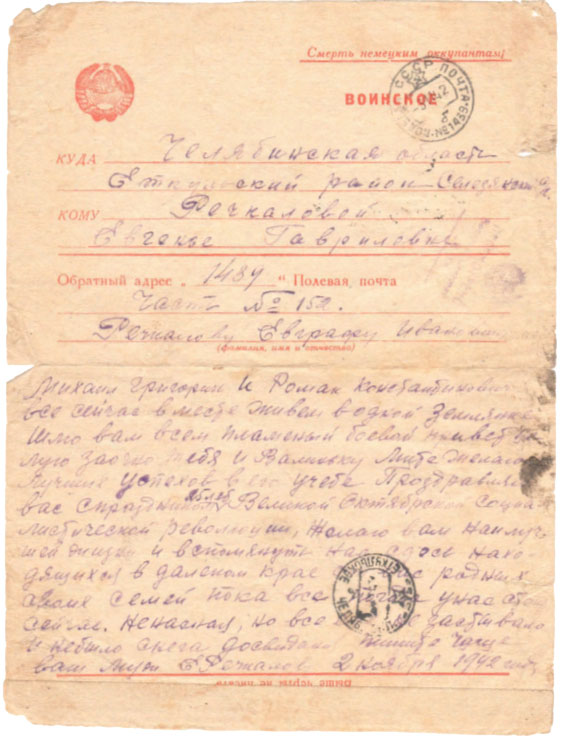 Смерть немецким оккупантам!
ВОИНСКОЕ
СССР ПОЧТА
КУДА Челябинская область
Еткульский район
КОМУ Речкаловой
Евгенье Гавриловне
Обратный адрес „ 1489 “ Полевая почта
Част № 152.
Речкалову Евграфу
(фамилия, имя и отчество)
Михаил Григории И Роман Константинович
все сейчас вместе живем в одной Землянке
Шлю вам всем пламеный боевой привет
лую заочно тебя и Мите желаю
Лучших успехов в его учебе Проздравляю
вас спраздником Великой Октябрской Социа
листической революции, желаю вам наилуч
шей жизни и вспомянуть нас здесь нахо-
дящихся в далеком крае родных
своих семей пока все у нас
сейчас. Ненасная, но все застывало
и небыло снега досвидания пишите чаще
ваш муж Е Речкалов 2 ноября 1942 года
Выше черты не писать